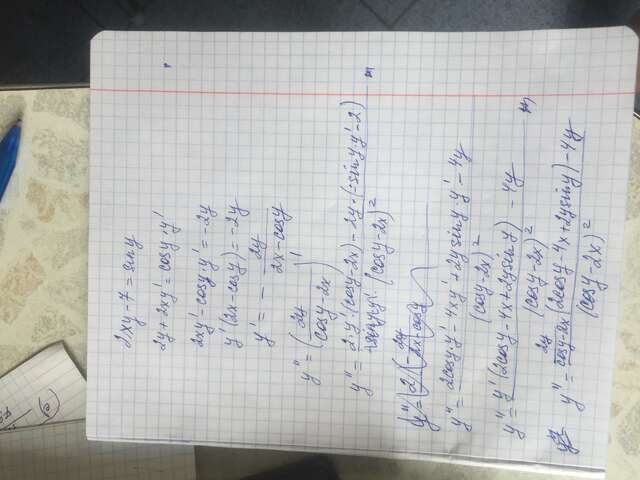 2xy - 7 = sin y
2y + 2xy' = cos y · y'
2xy' - cos y · y' = -2y
y'(2x - cos y) = -2y
y' = - 2y / (2x - cos y)
y'' = (2y / (cos y - 2x))'
y'' = (2·y'(cos y - 2x) - 2y·(-sin y·y' - 2)) / (cos y - 2x)²
y'' = (2cos y·y' - 4xy' + 2y sin y·y' + 4y) / (cos y - 2x)²
y'' = (y'(2cos y - 4x + 2y sin y) - 4y) / (cos y - 2x)²
y'' = (2y / (cos y - 2x) (2cos y - 4x + 2y sin y) - 4y) / (cos y - 2x)²